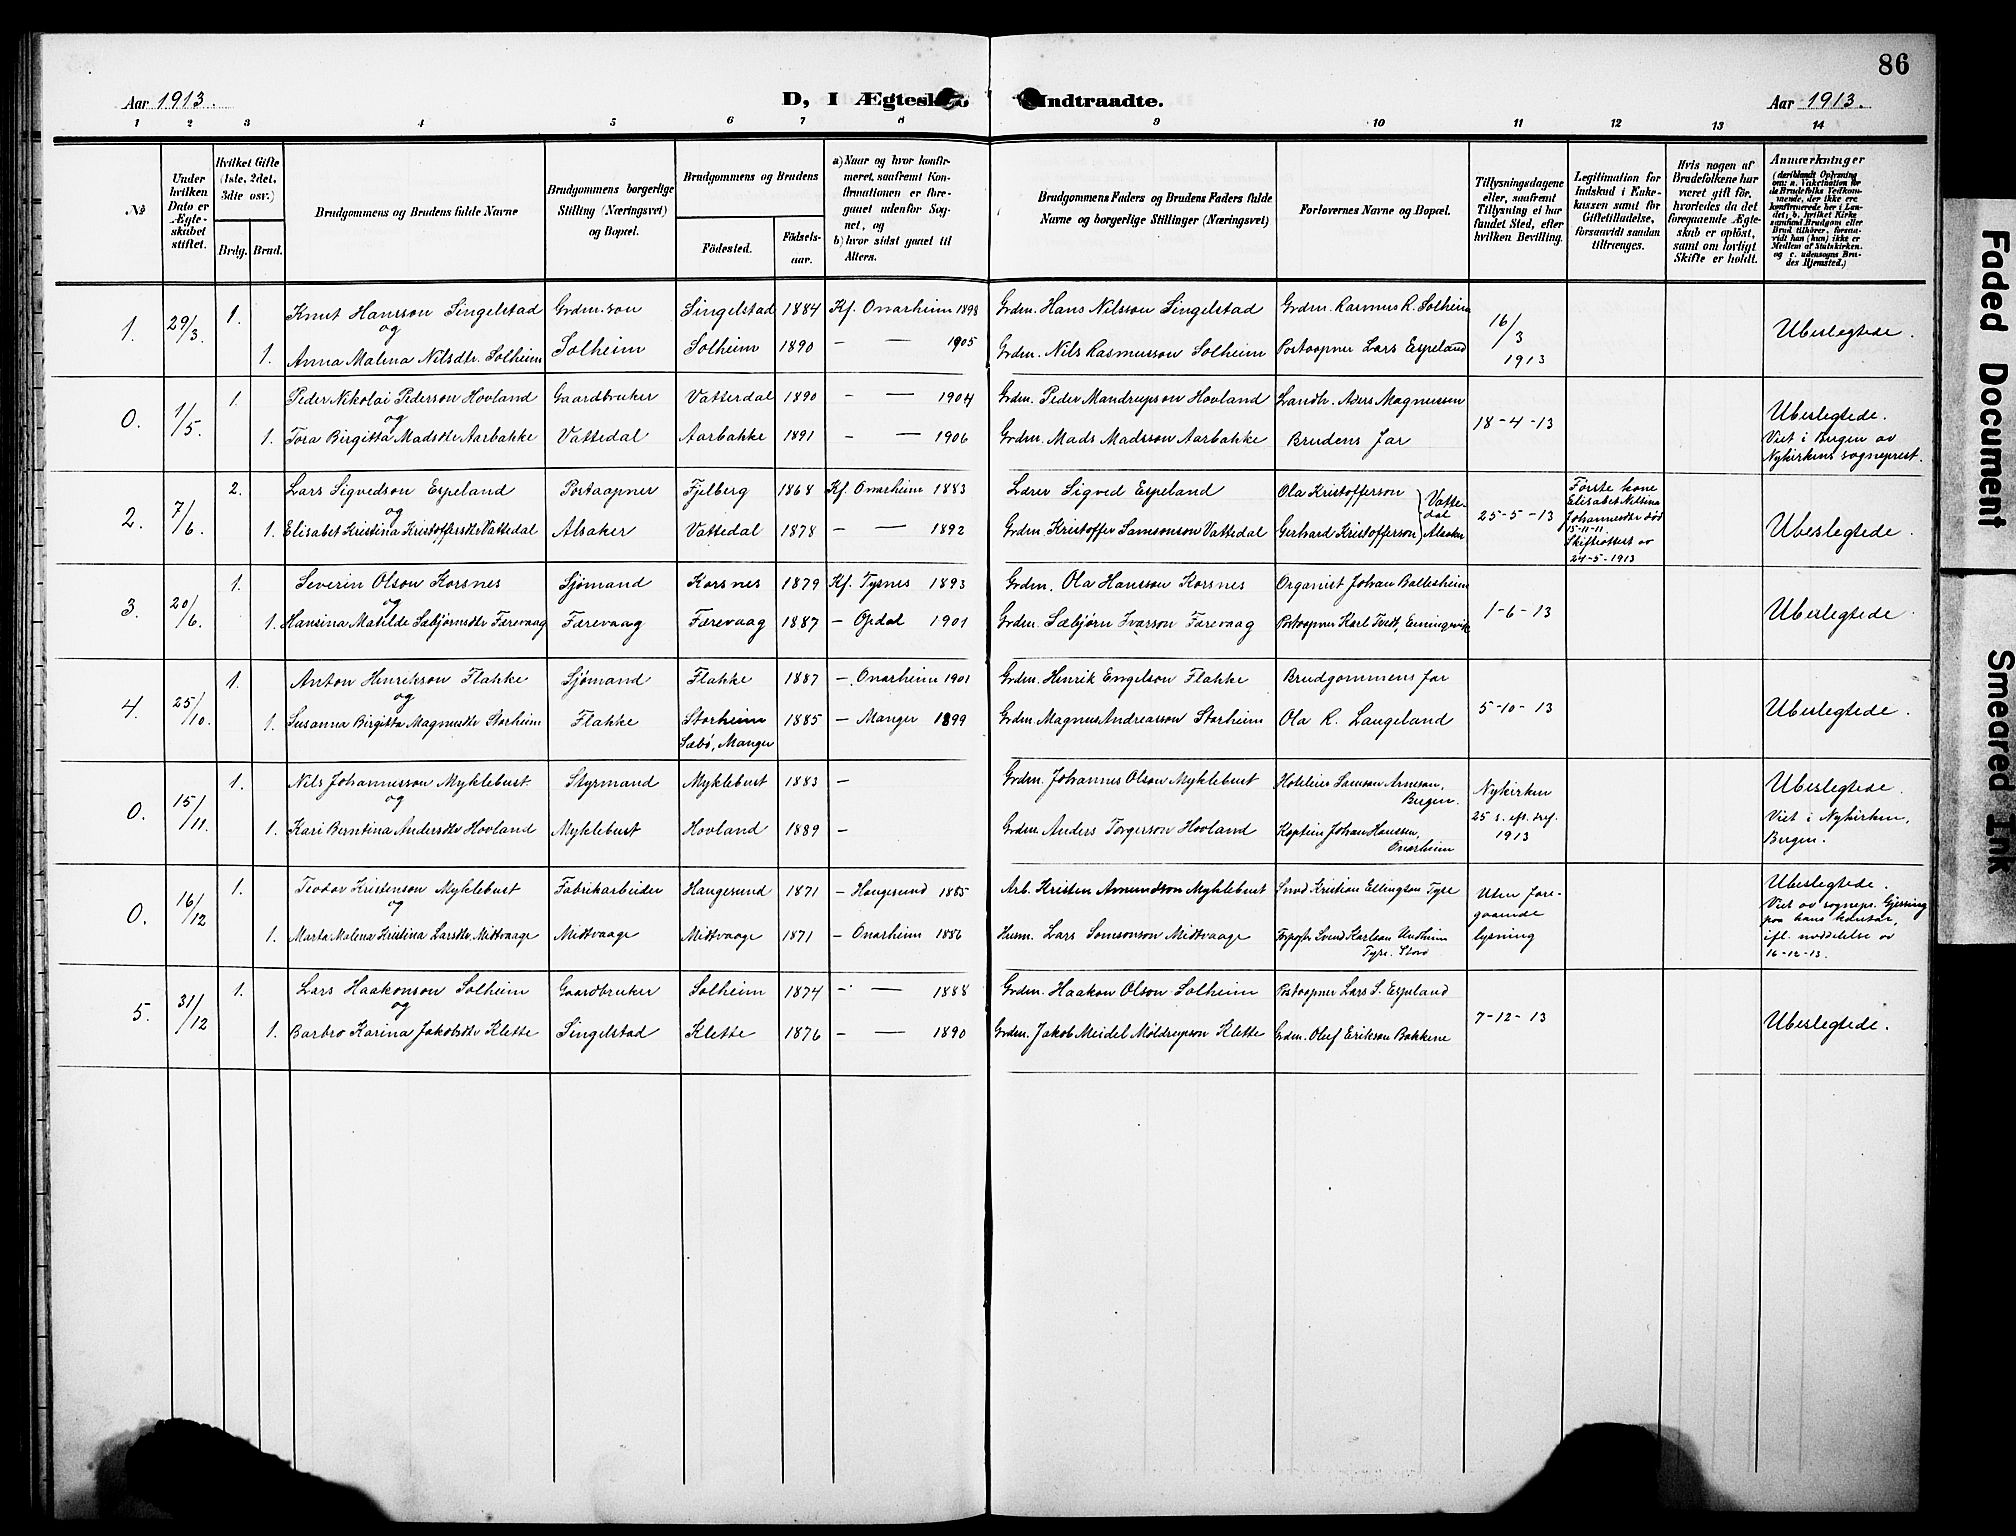 86
Aar 1913.
D, I Ægteskab Indtraadte.
Aar 1913.
1 2 3 4 5 6 7 8 9 10 11 12 13 14
No
Under hvilken Dato er Ægteskabet stiftet.
Hvilket Gifte (1ste, 2det, 3die osv.)
Brdg. Brud.
Brudgommens og Brudens fulde Navne
Brudgommens borgerlige Stilling (Næringsvei) og Bopæl.
Brudgommens og Brudens
Födested. Födsels-aar.
a) Naar og hvor konfirmeret, saafremt Konfirmationen er foregaaet udenfor Sognet, og
b) hvor sidst gaaet til Alters.
Brudgommens Faders og Brudens Faders fulde Navne og borgerlige Stillinger (Næringsvei)
Forlovernes Navne og Bopæl.
Tillysningsdagene eller, saafremt Tillysning ei har fundet Sted, efter hvilken Bevilling.
Legitimation for Indskud i Enkekassen samt for Giftetilladelse, forsaavidt saadan tiltrænges.
Hvis nogen af Brudefolkene har været gift för, hvorledes da det foregaaende Ægteskab er oplöst, samt om lovligt Skifte er holdt.
Anmærkninger
(deriblandt Oplysning om: a. Vakcination for de Brudefolks Vedkommende, der ikke ere konfirmerede her i Landet; b. hvilket Kirkesamfund Brudgom eller Brud tilhörer, forsaavidt han (hun) ikke er Medlem af Statskirken. og c. udensogns Brudes Hjemsted.)
1. 29/3 1. Knut Hansson Singelstad Grdm.søn Singelstad 1884 Kf. Onarheim 1898 Grdm. Hans Nilsson Singelstad Grdm. Rasmus R. Solheim 16/3 1913 Ubeslegtede.
og
1. Anna Malena Nilsdtr. Solheim Solheim Solheim 1890 – — 1905 Grdm. Nils Rasmusson Solheim Postaapner Lars Espeland
0. 1/5. 1. Peder Nikolai Pederson Hovland Gaardbruker Vattedal 1890 – — 1904 Grdm. Peder Mandrupson Hovland Landh. Aders Magnussen 18-4-13 Ubeslegtede.
og
1. Tora Birgitta Madsdtr Aarbakke Vattedal Aarbakke 1891 – — 1906 Grdm. Mads Madsson Aarbakke Brudens far
Viet i Bergen av
Nykirkens sogneprest.
2. 7/6. 2. Lars Sigvedson Espeland Postaapner Fjelberg 1868 Kf. Onarheim 1883 Lærer Sigved Espeland Ola Kristofferson Vattedal 25-5-13 Ubeslegtede.
og
1. Elisabet Kristina Kristoffersdtr Vattedal Alsaker Vattedal 1878 – — 1892 Grdm. Kristoffer Samsonson Vattedal Gerhard Kristofferson Alsaker
Første kone
Elisabet Nilsina
Johannesdtr død
15-11-11.
Skifteattest av
24-5-1913
3. 20/6. 1. Severin Olson Korsnes Sjømand Korsnes 1879 Kf. Tysnes 1893 Grdm. Ola Hansson Korsnes Organist Johan Ballesheim 1-6-13 Ubeslegtede
og
1. Hansina Matilde Sæbjørnsdtr Færevaag Færevaag Færevaag 1887 – Opdal 1901 Grdm. Sæbjørn Ivarson Færevaag Postaapner Karl Tvedt, Enningvik
4. 25/10. 1. Anton Henrikson Flakke Sjømand Flakke 1887 – Onarheim 1901 Grdm. Henrik Engelson Flakke Brudgommens far 5-10-13 Ubeslegtede.
og
1. Susanna Birgitta Magnusdtr Storheim Flakke Storheim 1885 – Manger 1899 Grdm. Magnus Andreasson Storheim Ola R. Langeland
Sæbø, Manger
0. 15/11. 1. Nils Johannesson Myklebust Styrmand Myklebust 1883 – Grdm. Johannes Olson Myklebust Hoteleier Samson Arneson, Bergen. Nykirken Ubeslegtede.
og
1. Kari Berntina Andersdtr Hovland Myklebust Hovland 1889 – Grdm. Anders Torgerson Hovland Kaptein Johan Hanssen, Onarheim 25 s. eft. tref. 1913
Viet i Nykirken,
Bergen.
0. 16/12 1. Teodor Kristenson Myklebust Fabrikarbeider Haugesund 1871 – Haugesund 1885 Arb. Kristen Amundson Myklebust Smed Kristian Ellingson Tyse Uten foregaaende lysning Ubeslegtede.
og
1. Marta Malena Kristina Larsdtr Midtvaage Midtvaage Midtvaage 1871 – Onarheim 1886 Husm. Lars Samsonson Midtvaage Svend Karlson Undheim Tyse. Stord
Viet av sognepr. Gjessing
paa hans kontor,
ifl. meddelelse av
16-12-13.
5. 31/12 1. Lars Haakonson Solheim Gaardbruker Solheim 1874 – — 1888 Grdm. Haakon Olson Solheim Postaapner Lars S. Espeland 7-12-13 Ubeslegtede.
og
1. Barbro Karina Jakobsdtr Klette Singelstad Klette 1876 – — 1890 Grdm. Jakob Meidel Moldrupson Klette Grdm. Oluf Erikson Bakkene
Faded Document
Smeared Ink